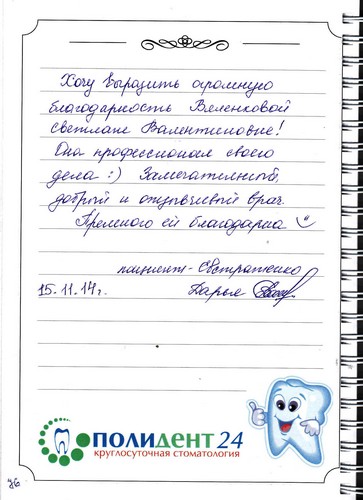 Хочу выразить огромную
благодарность Вяленковой
Светлане Валентиновне!
Она профессионал своего
дела :) Замечательный,
добрый и отзывчивый врач.
Премного ей благодарна
пациент - Евстратенко
15.11.14г. Дарья
ПОЛИДЕНТ 24
круглосуточная стоматология
86